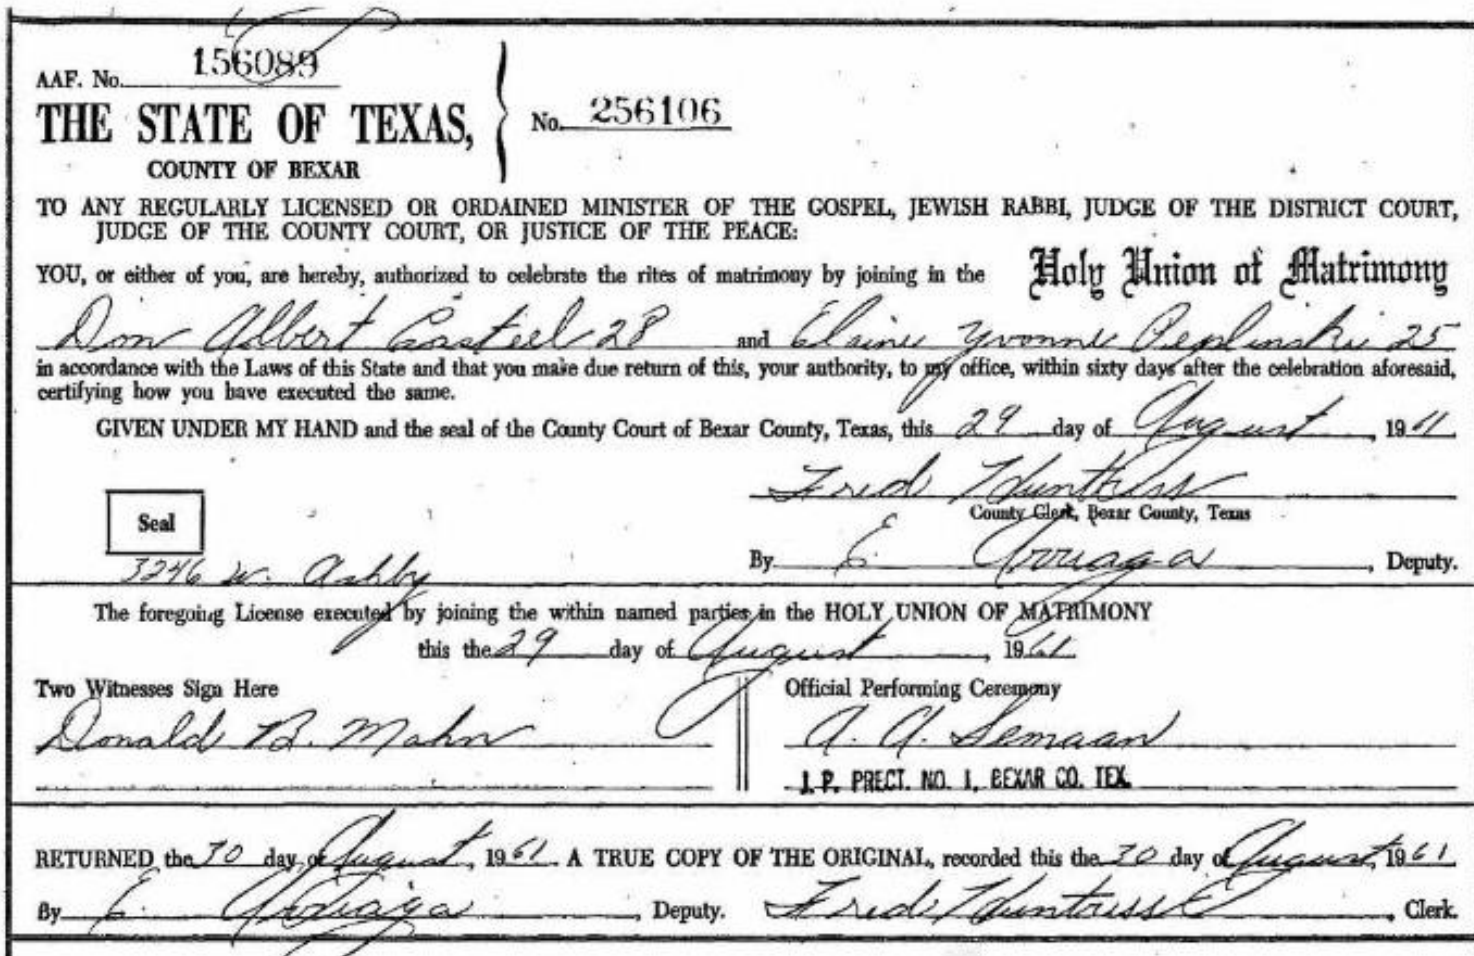 AAF. No. 156089
THE STATE OF TEXAS,
COUNTY OF BEXAR
No. 256106
TO ANY REGULARLY LICENSED OR ORDAINED MINISTER OF THE GOSPEL, JEWISH RABBI, JUDGE OF THE DISTRICT COURT,
JUDGE OF THE COUNTY COURT, OR JUSTICE OF THE PEACE:
YOU, or either of you, are hereby, authorized to celebrate the rites of matrimony by joining in the Holy Union of Matrimony
Don Albert Casteel 28 and Elaine Yvonne Peplinski 25
in accordance with the Laws of this State and that you make due return of this, your authority, to my office, within sixty days after the celebration aforesaid,
certifying how you have executed the same.
GIVEN UNDER MY HAND and the seal of the County Court of Bexar County, Texas, this 29 day of August, 1961
Fred Huntress
County Clerk, Bexar County, Texas
Seal
By E. Arriaga, Deputy.
3246 W. Ashby
The foregoing License executed by joining the within named parties in the HOLY UNION OF MATRIMONY
this the 29 day of August, 1961
Two Witnesses Sign Here
Official Performing Ceremony
Donald B. Mahn
A. A. Semaan
J. P. PRECT. NO. 1, BEXAR CO. TEX.
RETURNED the 30 day of August, 1961. A TRUE COPY OF THE ORIGINAL, recorded this the 30 day of August, 1961
By E. Arriaga, Deputy. Fred Huntress, Clerk.